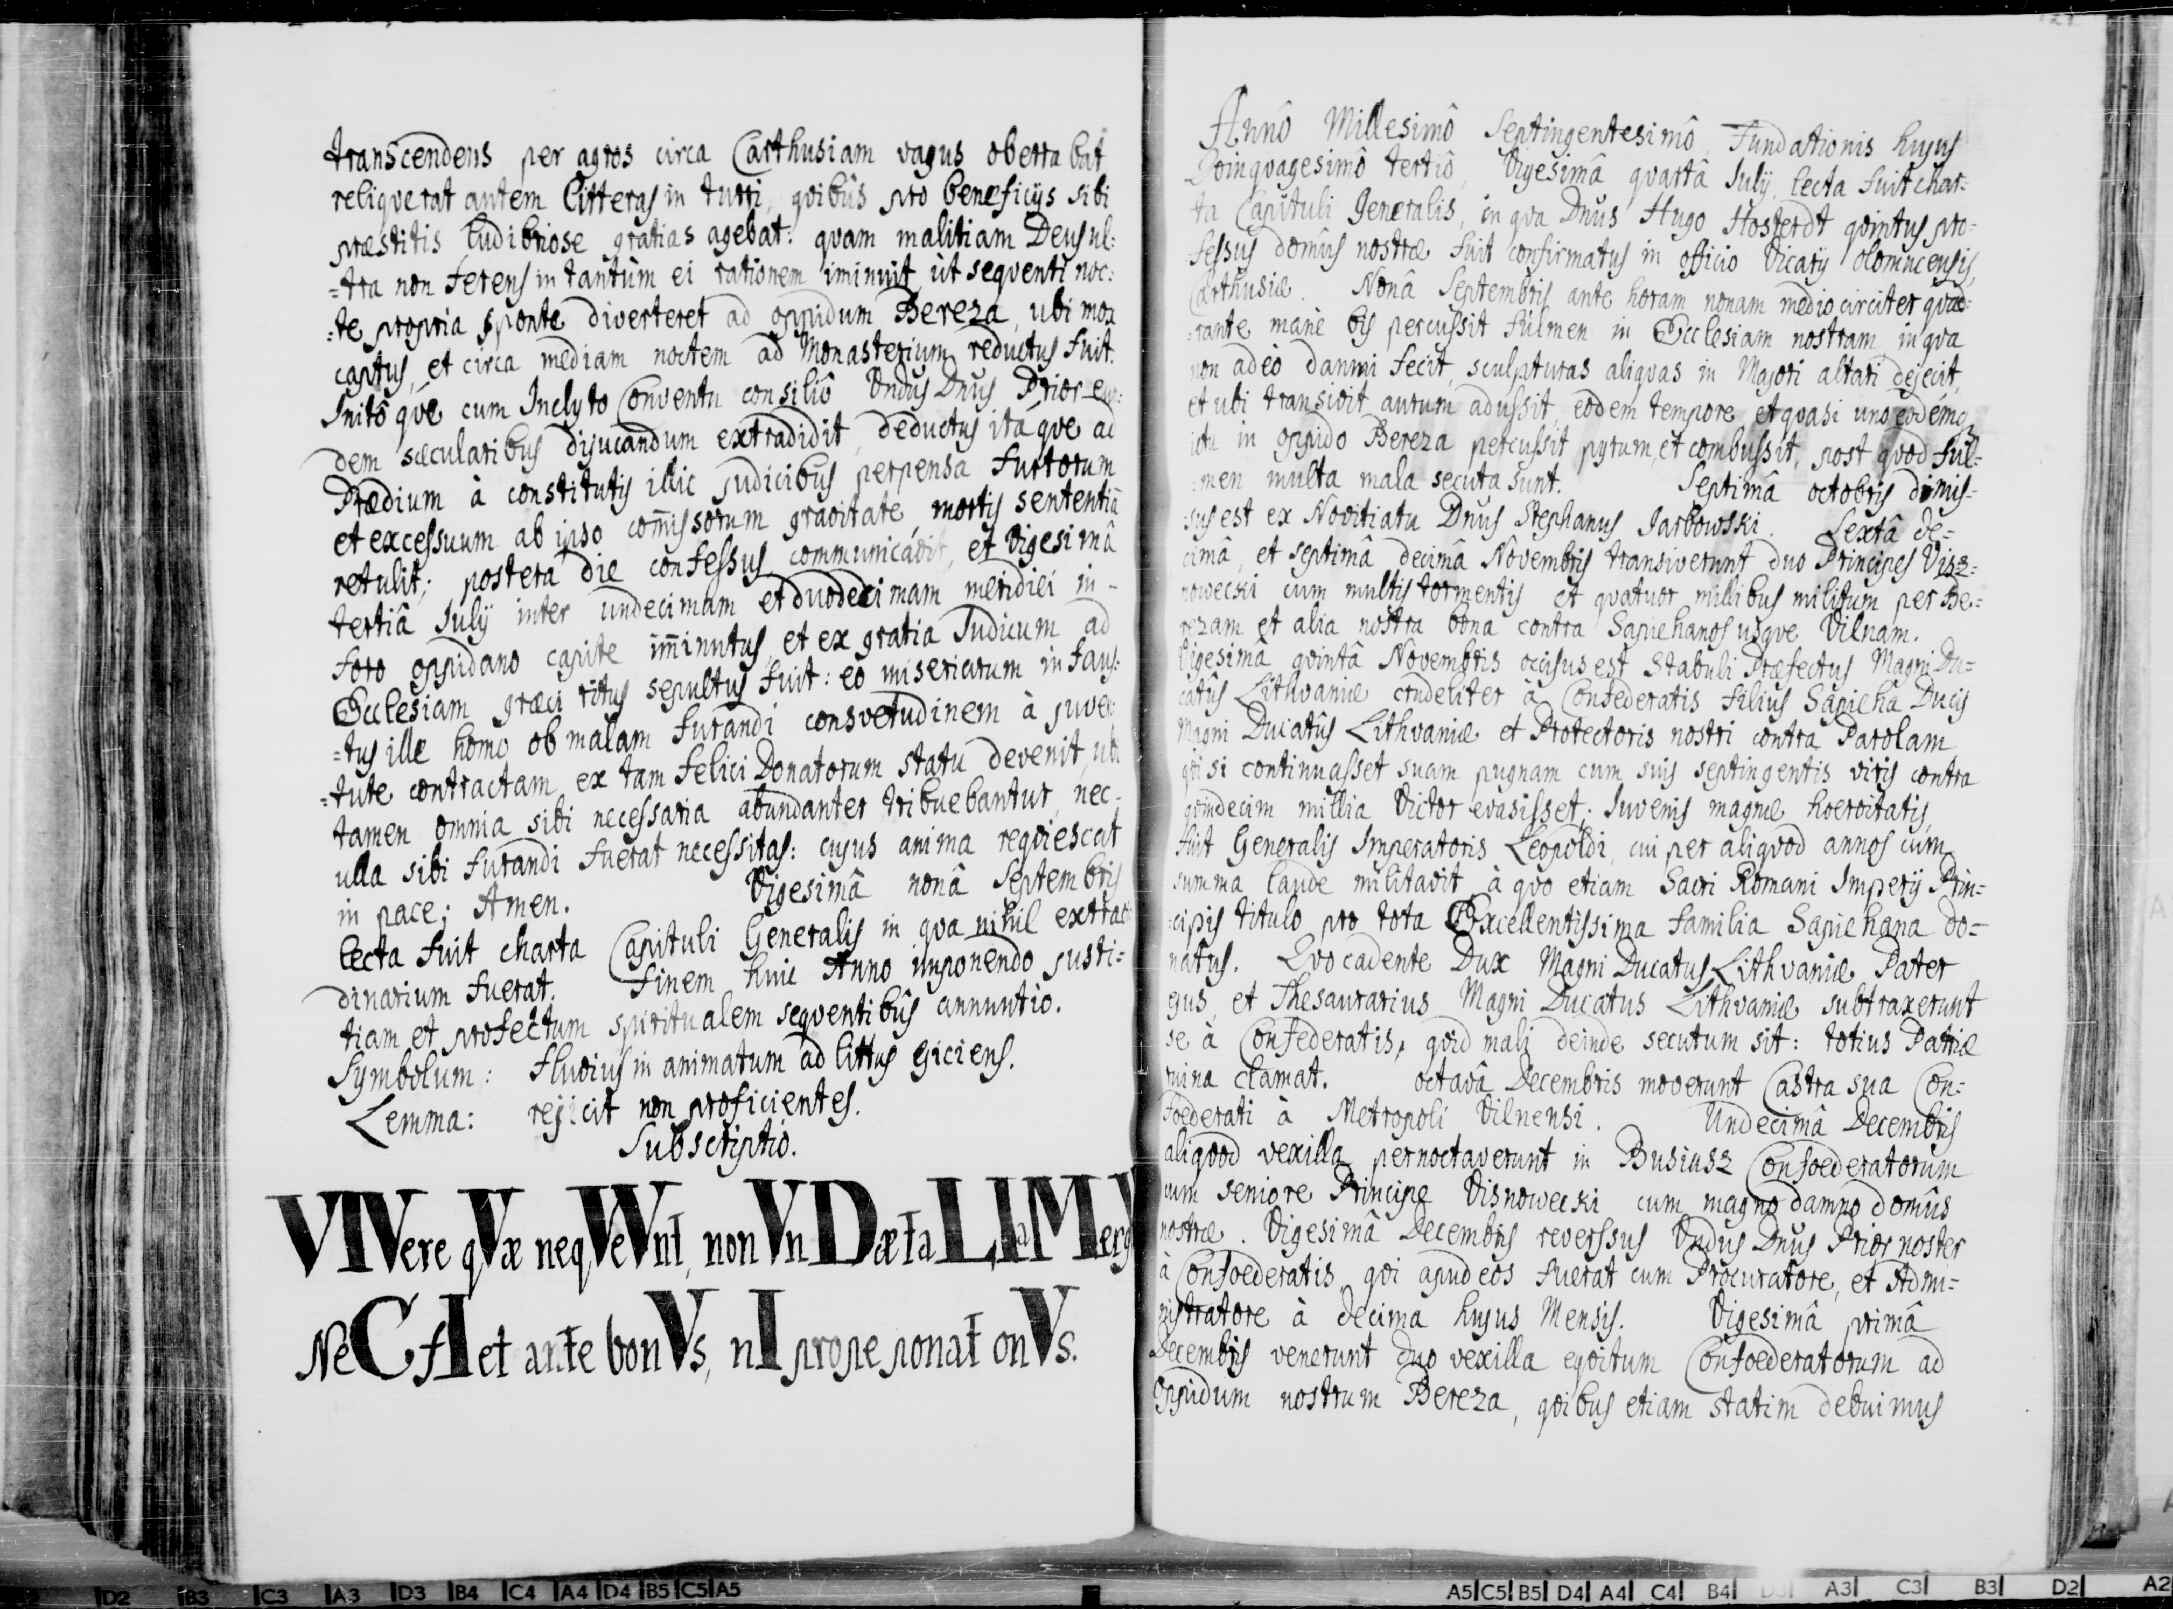 transcendens per agros circa Carthusiam vagus oberrabat
reliquerat autem litteras in turri, quibûs pro beneficijs sibi
præstitis ludibriose gratias agebat: quam malitiam Deus ul:
=tra non ferens in tantùm ei rationem iminuit, ùt sequenti noc:
:te propria sponte diverteret ad oppidum Bereza, ubi mox
captus, et circa mediam noctem ad Monasterium reductus fuit.
Initô que cum Inclyto Conventu consiliô Vndus Dnus Prior eun:
dem sæcularibus dijucandum extradidit, deductus ita que ad
Prædium à constitutis illic judicibus perpensa furtorum
et excessuum ab ipso comissorum gravitate, mortis sententiã
retulit; postera die confessus, communicavit, et Vigesimâ
tertiâ July inter undecimam et duodecimam meridiei in -
foro oppidano capite iminutus, et ex gratia Iudicum ad
Ecclesiam græci ritus sepultus fuit: eo miseriarum infaus:
=tus ille homo ob malam furandi consvetudinem à juven:
=tute contractam, ex tam felici Donatorum statu devenit, ubi
tamen omnia sibi necessaria abundanter tribuebantur, nec-
ulla sibi furandi fuerat necessitas: cujus anima requiescat
in pace; Amen. Vigesimâ nonâ Septembris
lecta fuit charta Capituli Generalis in qua nihil extraor
dinarium fuerat. Finem huic Anno imponendo justi:
tiam et profectum spiritualem sequentibûs annuntio.
Symbolum: Fluvius in animatum ad littus ejiciens.
Lemma: rejicit non proficientes.
Subscriptio.
VIVere qVæ neqVeVnt, non VnDæ taLIa Merg
NeC fIet ante bonVs, nI prope ponat onVs.
Annô Millesimô Septingentesimô, Fundationis hujus
Quinquagesimô tertiô, Vigesimâ quartâ July, lecta fuit char:
ta Capituli Generalis, in qua Dnus Hugo Hosterdt quintus pro=
fessus domûs nostræ fuit confirmatus in officio Vicarij Olomucensis
Carthusiæ. Nonâ Septembris ante horam nonam medio circiter quad:
:rante manè bis percussit fulmen in Ecclesiam nostram in qua
non adeò damni fecit, sculpturas aliquas in Majori altari dejecit,
et ubi transivit aurum adussit, eodem tempore et quasi uno eodemq
ictu in oppido Bereza percussit pyrum, et combussit, post quod ful=
:men multa mala secuta sunt. Septimâ octobris dimis=
:sus est ex Novitiatu Dnus Stephanus Jarbowski. Sextâ de=
cimâ, et septimâ decimâ Novembris transiverunt duo Principes Visz:
nowecski cum multis tormentis et quatuor millibus militum per Be:
rezam et alia nostra bona contra Sapiehanos usque Vilnam.
Vigesimâ quintâ Novembris occisus est Stabuli Præfectus Magni Du=
catûs Lithvaniæ crudeliter à Confederatis filius Sapieha Ducis
Magni Ducatûs Lithvaniæ et Protectoris nostri contra Parolam
qui si continuasset suam pugnam cum suis septingentis viris contra
quindecim millia Victor evasisset; Iuvenis magnæ hoeroitatis,
fuit Generalis Imperatoris Leopoldi, cui per aliquod annos cum
summa laude militavit, à quo etiam Sacri Romani Imperij Prin=
:cipis titulo pro tota Excellentissima familia Sapiehana do=
natus. Quo cadente Dux Magni Ducatus Lithvaniæ Pater
ejus, et Thesaurarius Magni Ducatus Lithvaniæ subtraxerunt
se à Confederatis, quid mali deinde secutum sit: totius Patriæ
ruina clamat. octavâ Decembris moverunt Castra sua Con:
foederati à Metropoli Vilnensi. Undecimâ Decembris
aliquod vexilla pernoctaverunt in Busiasz Confoederatorum
cum seniore Principe Visnowecki cum magno damno domûs
nostræ. Vigesimâ Decembris reverssus Vndus Dnus Prior noster
à Confoederatis, qui apud eos fuerat cum Procuratore, et Admi=
nistratore à decima hujus Mensis. Vigesimâ primâ
Decembris venerunt duo vexilla equitum Confoederatorum ad
Oppidum nostrum Bereza, quibus etiam statim debuimus